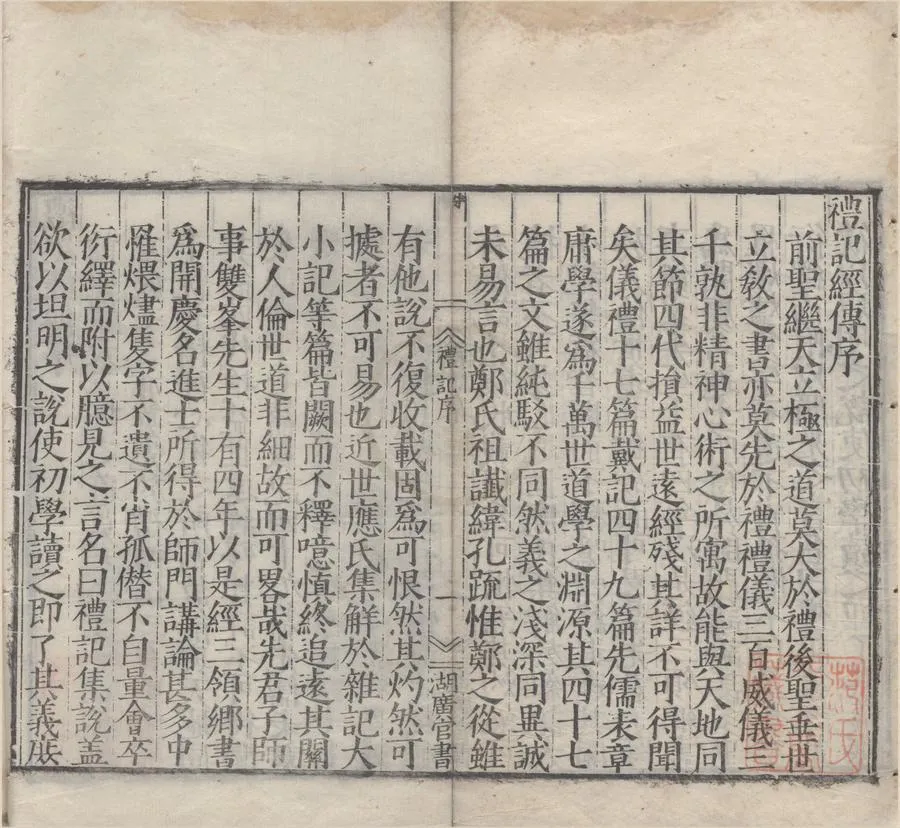 禮記經傳序
前聖繼天立極之道莫大於禮後聖垂世
立敎之書亦莫先於禮禮儀三百威儀三
千孰非精神心術之所寓故能與天地同
其節四代損益世遠經殘其詳不可得聞
矣儀禮十七篇戴記四十九篇先儒表章
庸學遂爲千萬世道學之淵源其四十七
篇之文雖純駁不同然義之淺深同異誠
未易言也鄭氏祖讖緯孔疏惟鄭之從雖
禮記序
一
湖廣官書
有他說不復收載固爲可恨然其灼然可
據者不可易也近世應氏集解於雜記大
小記等篇皆闕而不釋噫慎終追遠其關
於人倫世道非細故而可畧哉先君子師
事雙峯先生十有四年以是經三領鄉書
爲開慶名進士所得於師門講論甚多中
罹煨燼隻字不遺不肖孤僭不自量會卒
衍繹而附以臆見之言名曰禮記集說盖
欲以坦明之說使初學讀之即了其義庶